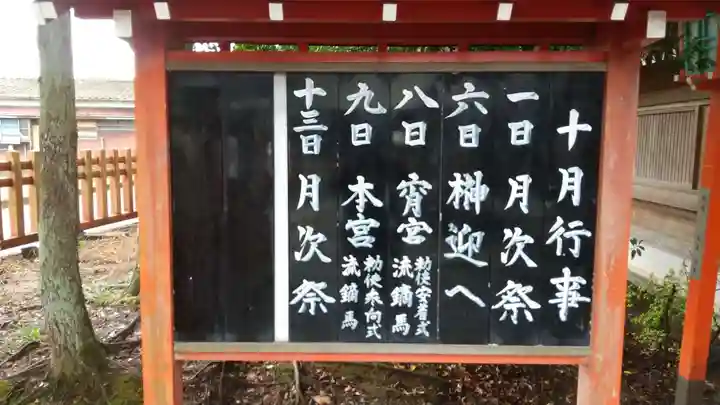 十月行事
一日 月次祭
六日 榊迎へ
八日 宵宮 勅使安着式
流鏑馬
九日 本宮 勅使参向式
流鏑馬
十三日 月次祭